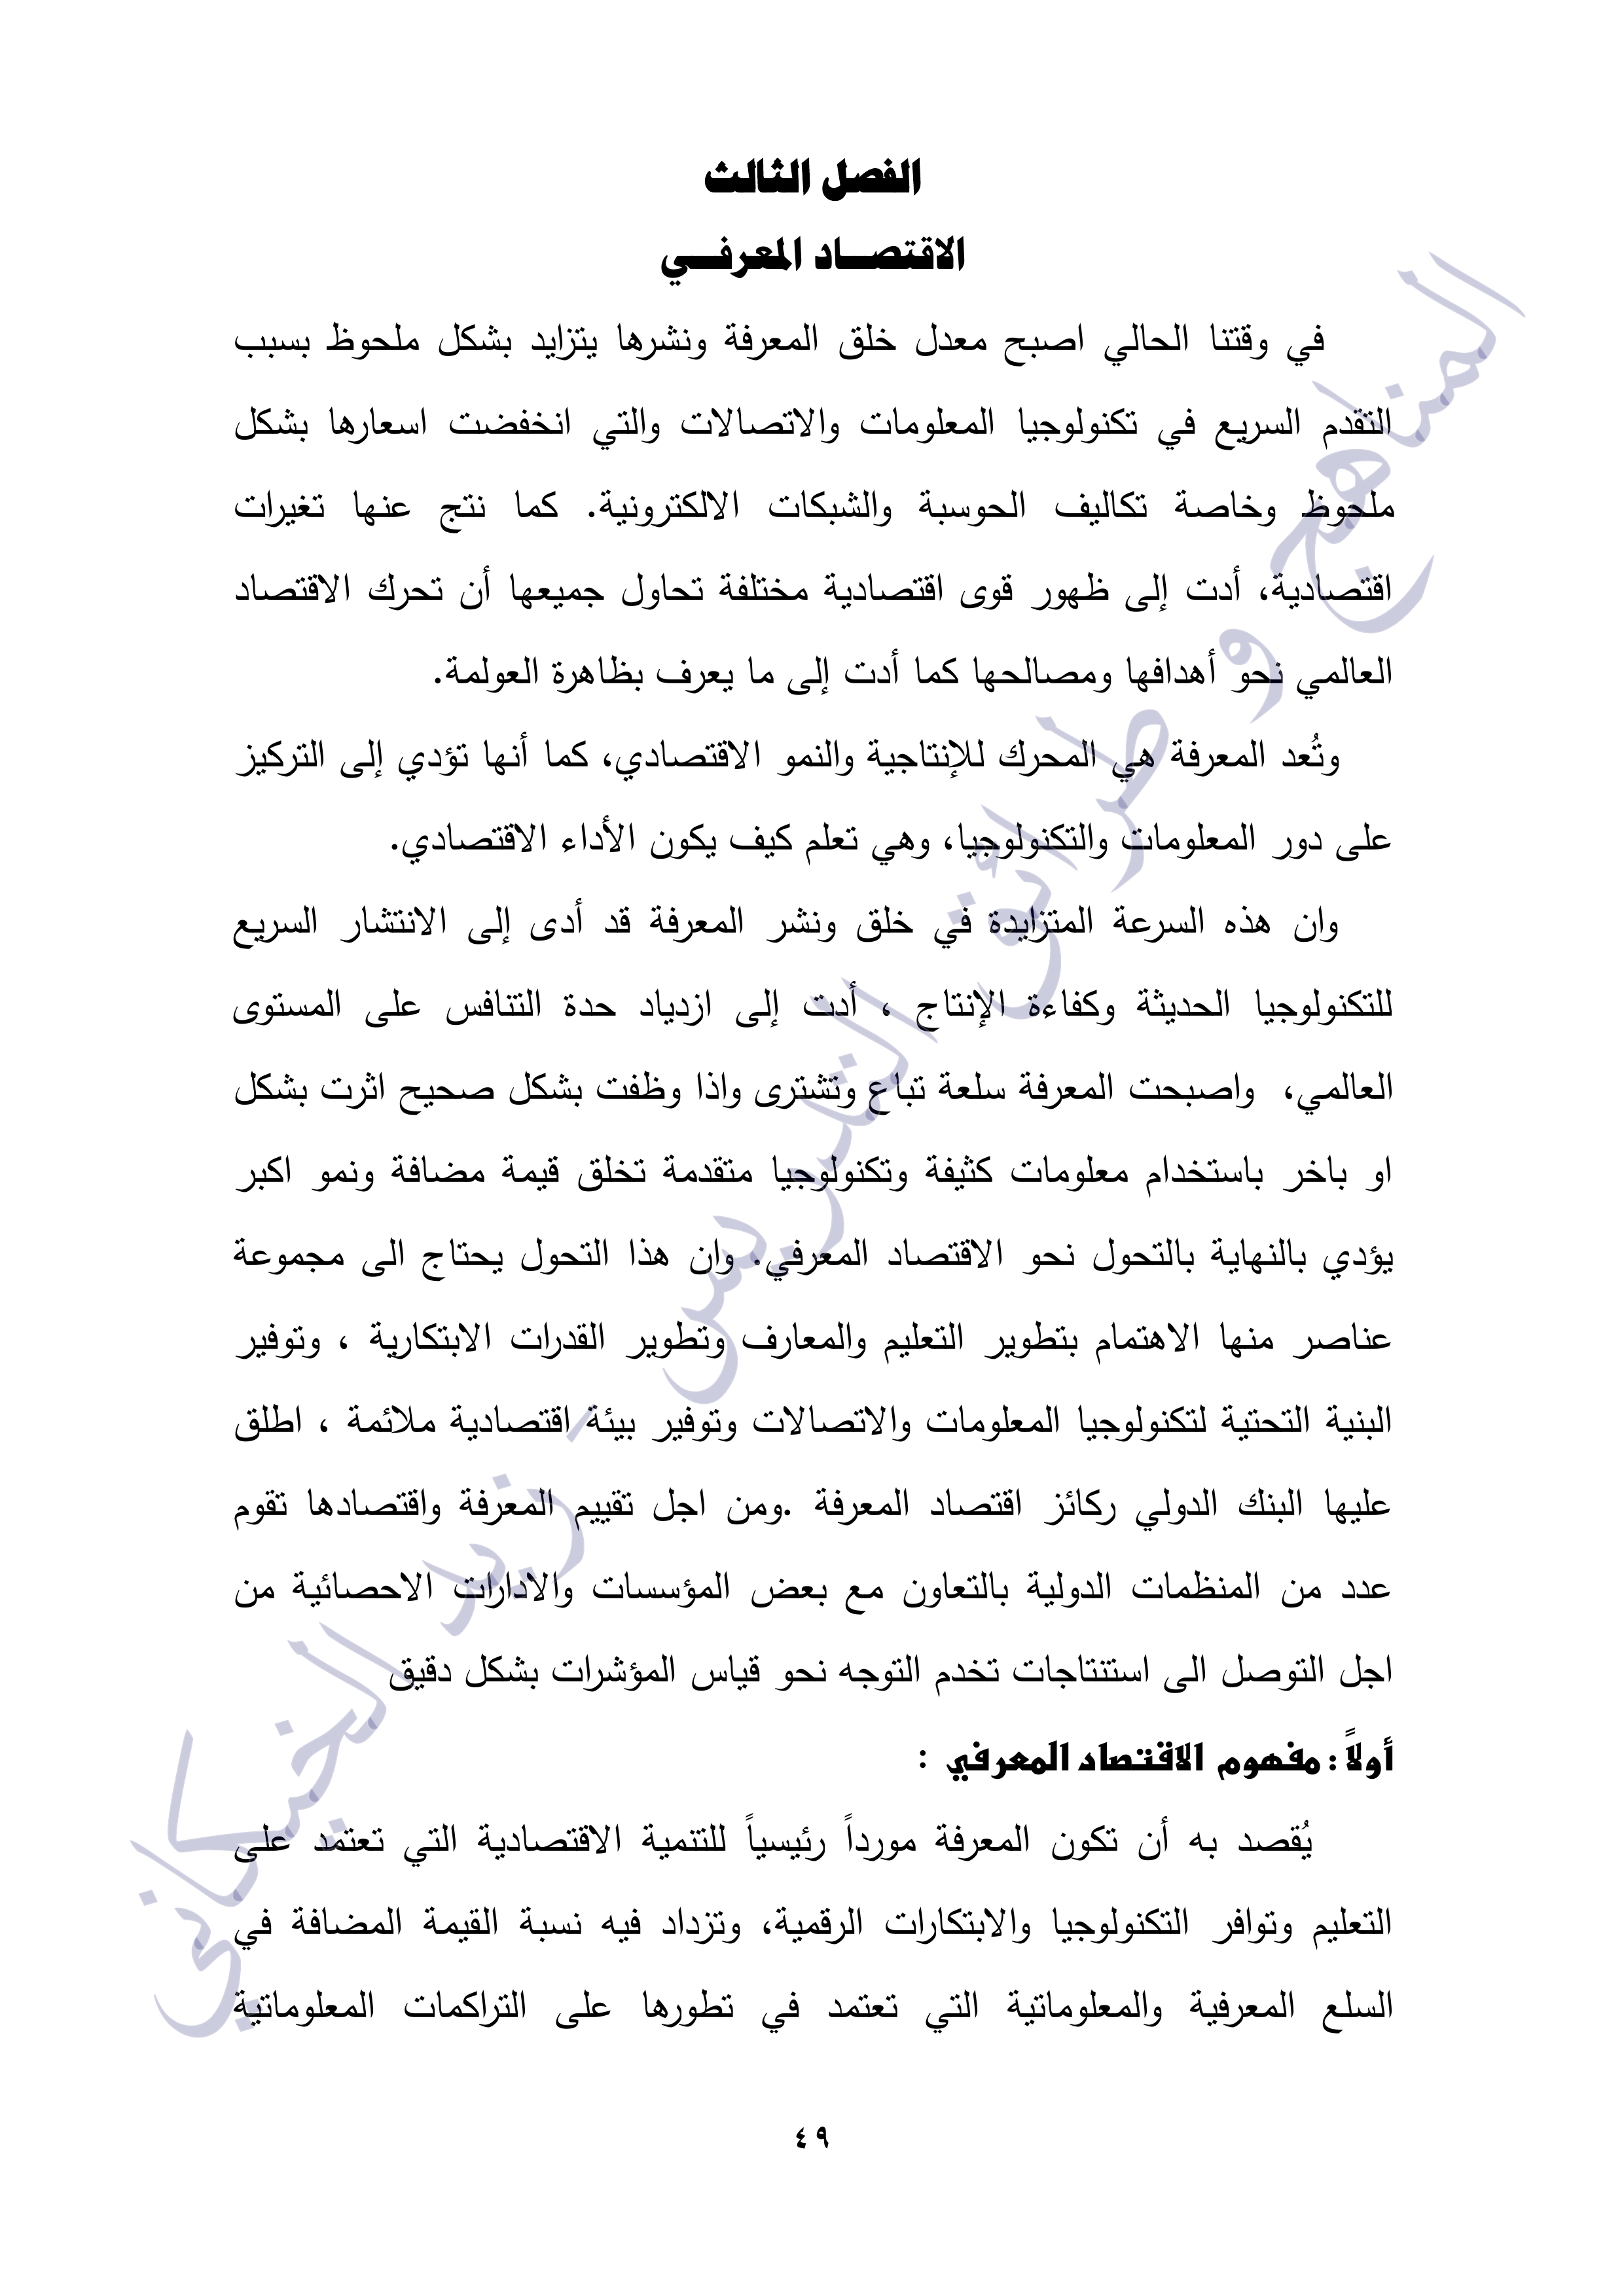 الفصل الثالث
الاقتصـــاد المعرفـــي
في وقتنا الحالي اصبح معدل خلق المعرفة ونشرها يتزايد بشكل ملحوظ بسبب
التقدم السريع في تكنولوجيا المعلومات والاتصالات والتي انخفضت اسعارها بشكل
ملحوظ وخاصة تكاليف الحوسبة والشبكات الالكترونية. كما نتج عنها تغيرات
اقتصادية، أدت إلى ظهور قوى اقتصادية مختلفة تحاول جميعها أن تحرك الاقتصاد
العالمي نحو أهدافها ومصالحها كما أدت إلى ما يعرف بظاهرة العولمة.
وتُعد المعرفة هي المحرك للإنتاجية والنمو الاقتصادي، كما أنها تؤدي إلى التركيز
على دور المعلومات والتكنولوجيا، وهي تعلم كيف يكون الأداء الاقتصادي.
وان هذه السرعة المتزايدة في خلق ونشر المعرفة قد أدى إلى الانتشار السريع
للتكنولوجيا الحديثة وكفاءة الإنتاج ، أدت إلى ازدياد حدة التنافس على المستوى
العالمي، واصبحت المعرفة سلعة تباع وتشترى واذا وظفت بشكل صحيح اثرت بشكل
او باخر باستخدام معلومات كثيفة وتكنولوجيا متقدمة تخلق قيمة مضافة ونمو اكبر
يؤدي بالنهاية بالتحول نحو الاقتصاد المعرفي. وان هذا التحول يحتاج الى مجموعة
عناصر منها الاهتمام بتطوير التعليم والمعارف وتطوير القدرات الابتكارية ، وتوفير
البنية التحتية لتكنولوجيا المعلومات والاتصالات وتوفير بيئة اقتصادية ملائمة ، اطلق
عليها البنك الدولي ركائز اقتصاد المعرفة .ومن اجل تقييم المعرفة واقتصادها تقوم
عدد من المنظمات الدولية بالتعاون مع بعض المؤسسات والادارات الاحصائية من
اجل التوصل الى استنتاجات تخدم التوجه نحو قياس المؤشرات بشكل دقيق
أولاً : مفهوم الاقتصاد المعرفي :
يُقصد به أن تكون المعرفة مورداً رئيسياً للتنمية الاقتصادية التي تعتمد على
التعليم وتوافر التكنولوجيا والابتكارات الرقمية، وتزداد فيه نسبة القيمة المضافة في
السلع المعرفية والمعلوماتية التي تعتمد في تطورها على التراكمات المعلوماتية
٤٩
المناهج و طرائق التدريس - زيد الخيكاني